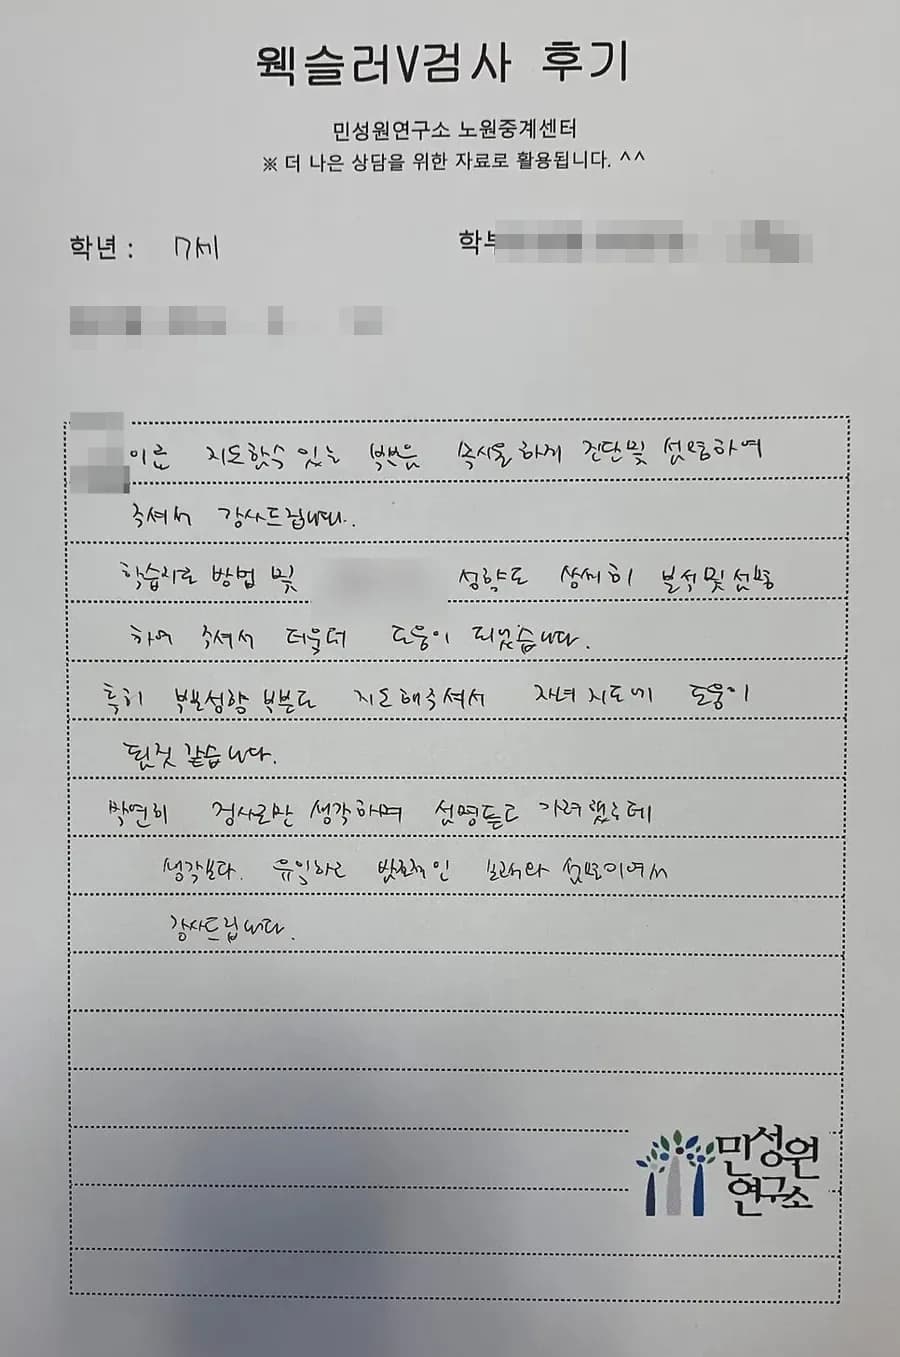 웩슬러V검사 후기
민성원연구소 노원중계센터
※ 더 나은 상담을 위한 자료로 활용됩니다. ^^
학년 : 7세
학부
지도할수 있는 하게 진단및 설명하여
주셔서 감사드립니다.
방법 및 성향도 상세히 분석및설명
하여 주셔서 더욱더 도움이 되었습니다.
특히 성향 부분도 지도해주셔서 자녀 지도에 도움이
된것 같습니다.
막연히 검사로만 생각하며 설명듣고 가려했는데
생각보다. 유익하고 설명이여서
감사드립니다.
민성원
연구소